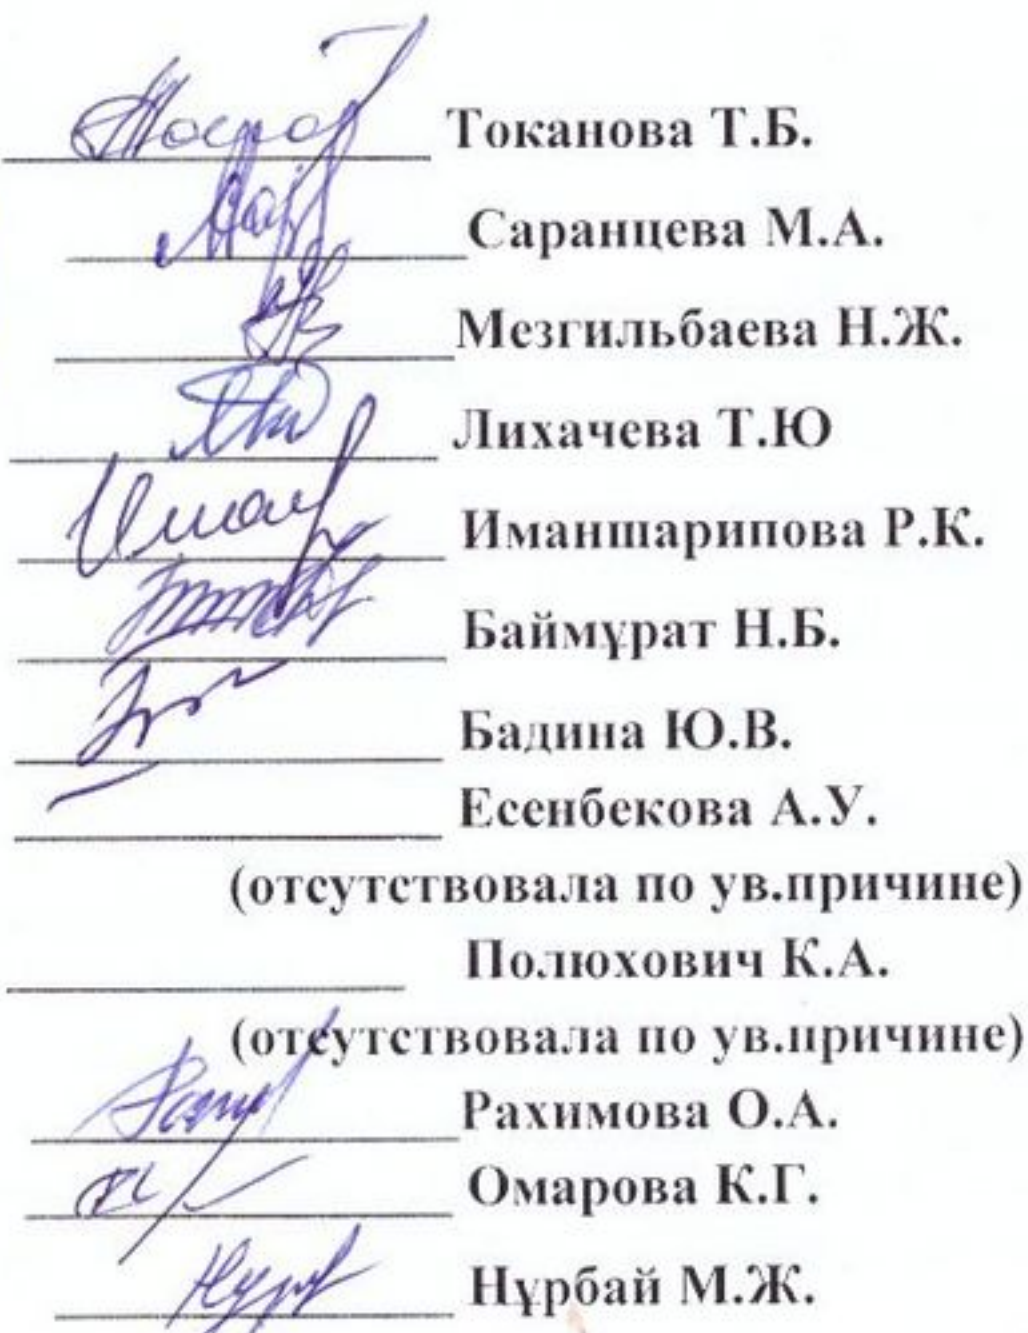 Токанова Т.Б.
Саранцева М.А.
Мезгильбаева Н.Ж.
Лихачева Т.Ю
Иманшарипова Р.К.
Баймұрат Н.Б.
Бадина Ю.В.
Есенбекова А.У.
(отсутствовала по ув.причине)
Полюхович К.А.
(отсутствовала по ув.причине)
Рахимова О.А.
Омарова К.Г.
Нұрбай М.Ж.